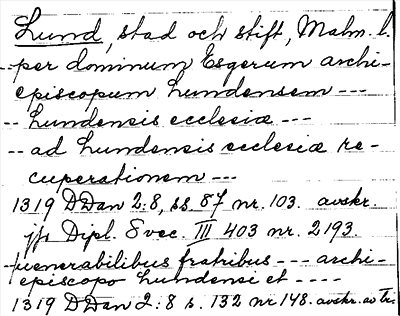 Lund, stad och stift, Malm. l.
-- per dominum Esgerum archi-
episcopum Lundensem ---
-- Lundensis ecclesiæ ---
-- ad Lundensis ecclesiæ re-
cuperationem ---
1319 DDan 2:8, ss 87 nr. 103. avskr.
jfr Dipl. Svec. III 403 nr. 2193.
-- venerabilibus fratribus --- archi-
episcopo Lundensi et ----
1319 DDan 2:8 s. 132 nr 148. avskr. av tr.